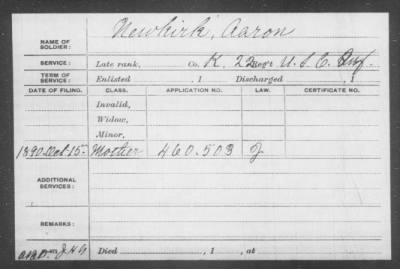 Newkirk, Aaron
NAME OF SOLDIER:
SERVICE: Late rank, Co. K. 22 Reg't U. S. C. Inf.
TERM OF SERVICE: Enlisted , 1 Discharged , 1
DATE OF FILING. CLASS. APPLICATION NO. LAW. CERTIFICATE NO.
Invalid,
Widow,
Minor,
1890 Oct. 15. Mother 460.503
ADDITIONAL SERVICES:
REMARKS:
Died , 1 , at